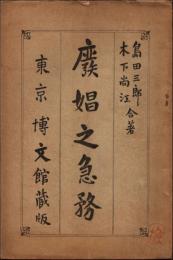 島田三郎
木下尚江 合著
廃娼之急務
東京博文館蔵版